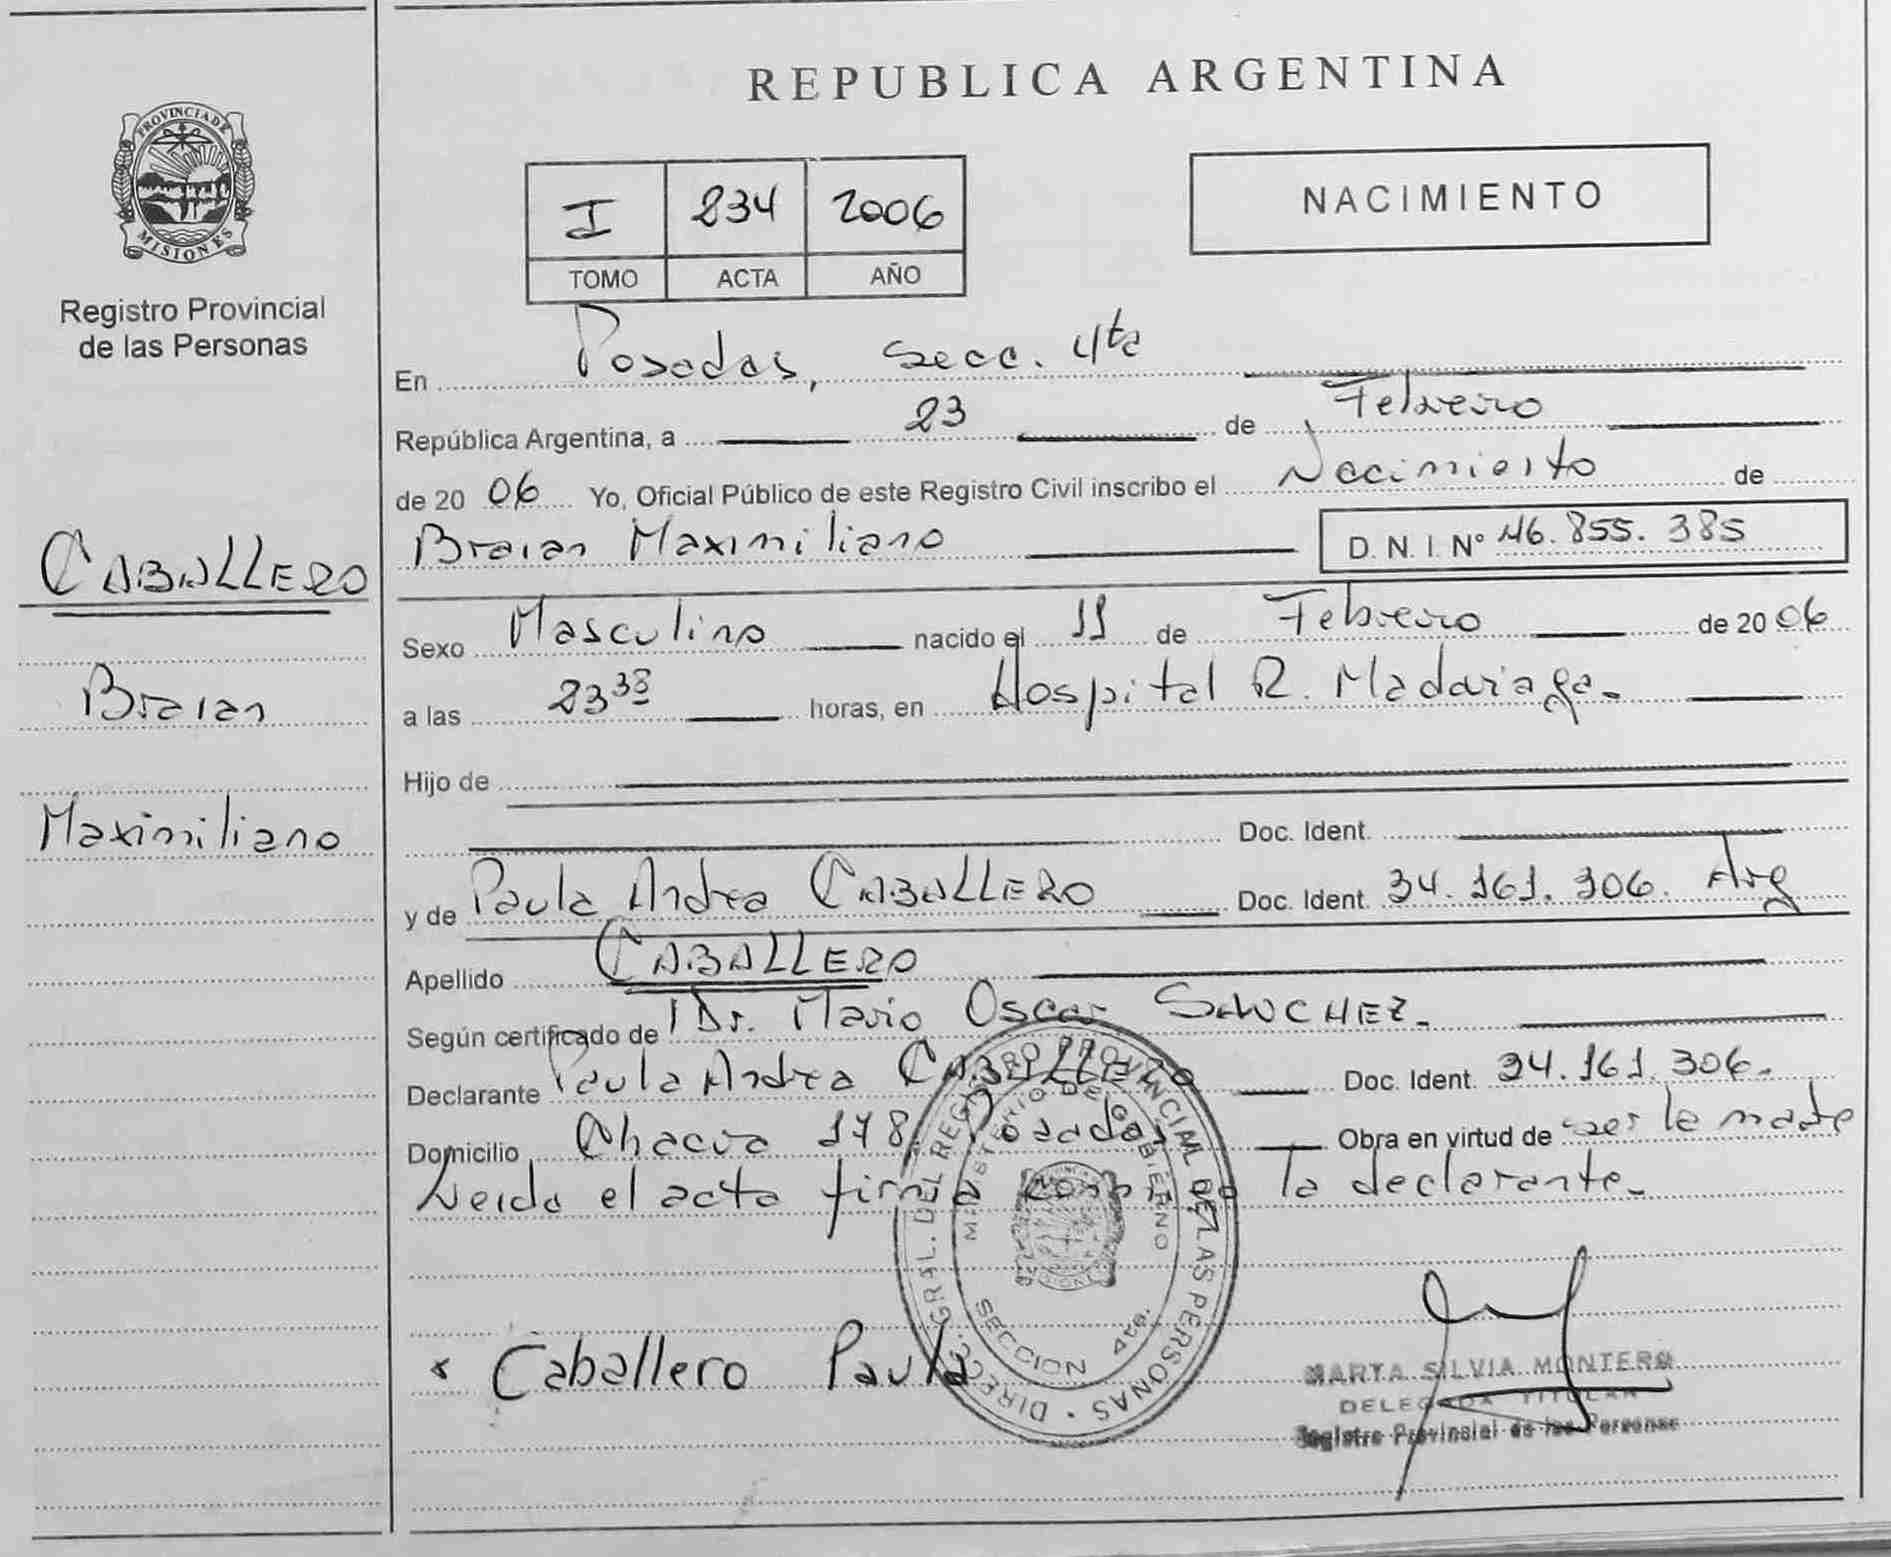 PROVINCIA DE
MISIONES
Registro Provincial
de las Personas
CABALLERO
Braian
Maximiliano
REPUBLICA ARGENTINA
I 234 2006
TOMO ACTA AÑO
NACIMIENTO
En Posadas, Secc. 4ta
República Argentina, a 23 de Febrero
de 2006 Yo, Oficial Público de este Registro Civil inscribo el Nacimiento de
Braian Maximiliano D. N. I. Nº 46.855.385
Sexo Masculino nacido el 11 de Febrero de 2006
a las 23 38 horas, en Hospital R. Madariaga.
Hijo de
Doc. Ident.
y de Paula Andrea CABALLERO Doc. Ident. 34.161.306. Arg
Apellido CABALLERO
Según certificado de Dr. Mario Oscar SANCHEZ.
Declarante Paula Andrea CABALLERO Doc. Ident. 34.161.306.
Domicilio Chacra 178, Posadas Obra en virtud de ser la madre
Leida el acta firma conmigo la declarante.
DIRECC. GRAL. DEL REGISTRO PROVINCIAL DE LAS PERSONAS
MINISTERIO DE GOBIERNO
SECCION 4ta.
Caballero Paula
MARTA SILVIA MONTERO
DELEGADA TITULAR
Registro Provincial de las Personas